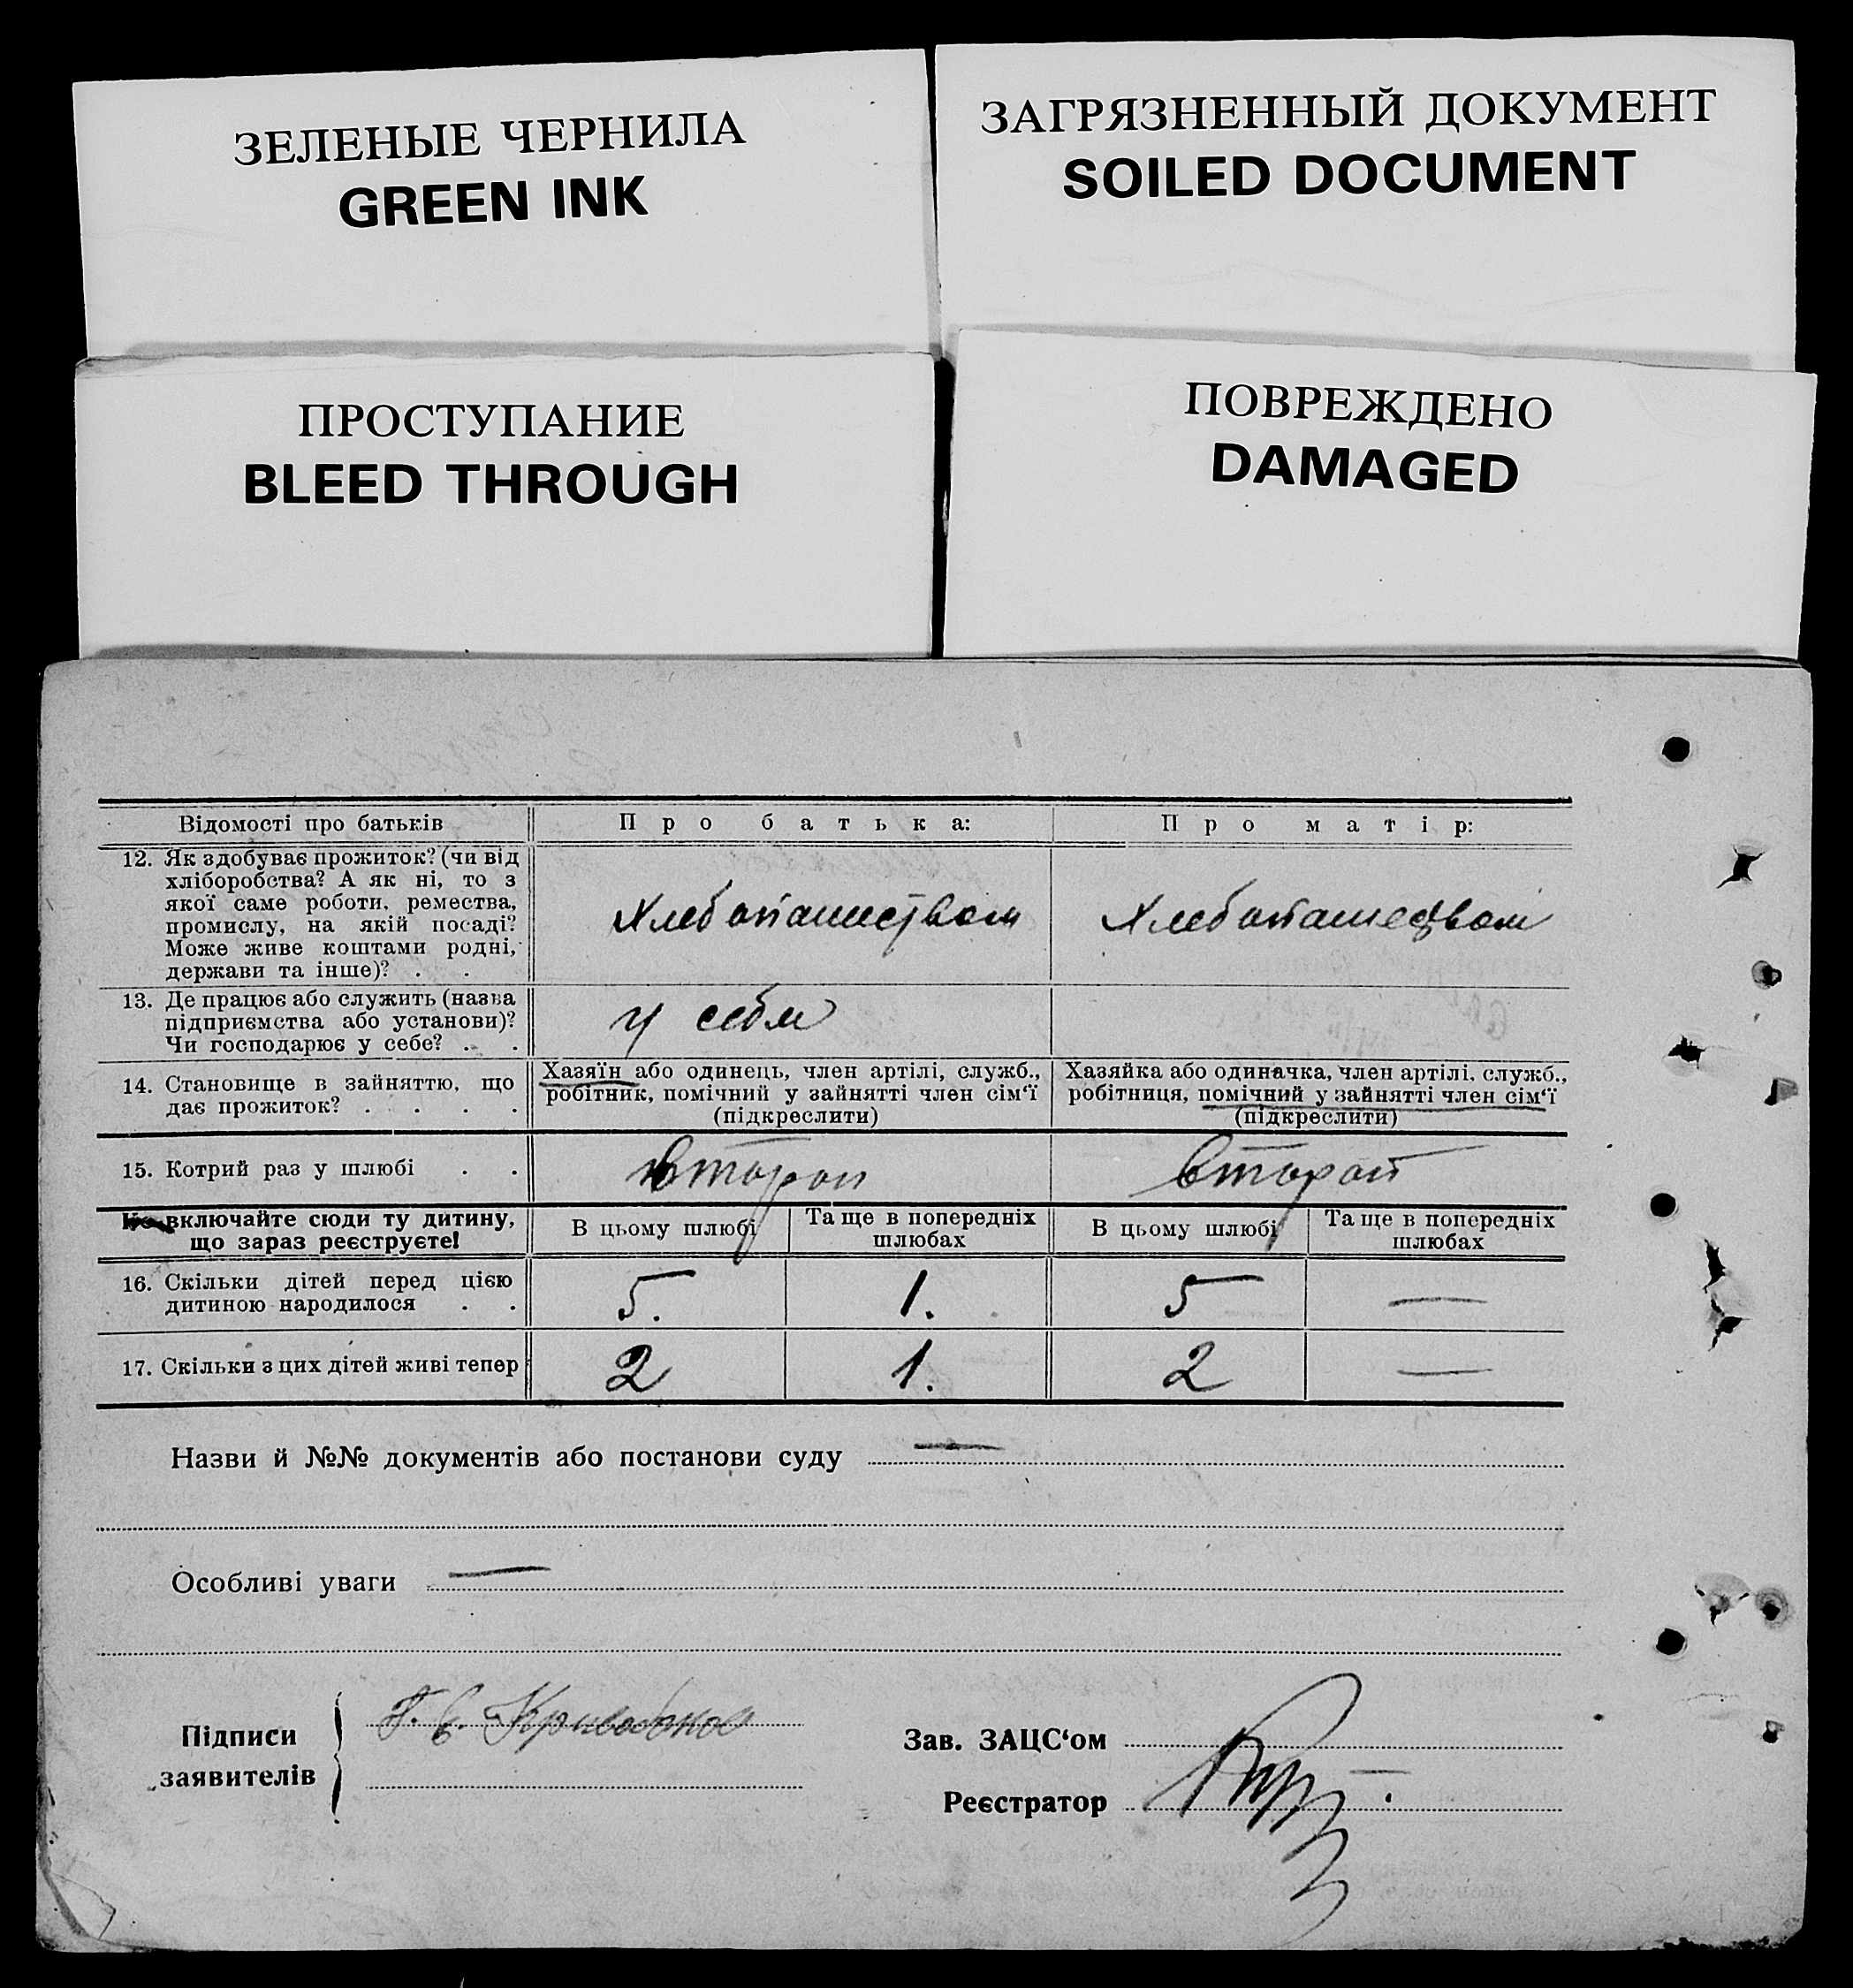 ЗЕЛЕНЫЕ ЧЕРНИЛА
GREEN INK
ЗАГРЯЗНЕННЫЙ ДОКУМЕНТ
SOILED DOCUMENT
ПРОСТУПАНИЕ
BLEED THROUGH
ПОВРЕЖДЕНО
DAMAGED
Відомості про батьків
Про батька:
Про матір:
12. Як здобуває прожиток? (чи від
хліборобства? А як ні, то з
якої саме роботи, ремества,
промислу, на якій посаді?
Може живе коштами родні,
держави та інше)? . .
Хлебопашеством
Хлебопашеством
13. Де працює або служить (назва
підприємства або установи)?
Чи господарює у себе? . .
у себя
14. Становище в зайняттю, що
дає прожиток? . . . .
Хазяїн або одинець, член артілі, служб.,
робітник, помічний у зайнятті член сім‘ї
(підкреслити)
Хазяйка або одиначка, член артілі, служб.,
робітниця, помічний у зайнятті член сім‘ї
(підкреслити)
15. Котрий раз у шлюбі . .
второй
второй
Не включайте сюди ту дитину,
що зараз реєструєте!
В цьому шлюбі
Та ще в попередніх
шлюбах
В цьому шлюбі
Та ще в попередніх
шлюбах
16. Скільки дітей перед цією
дитиною народилося . .
5.
1.
5
—
17. Скільки з цих дітей живі тепер
2
1.
2
—
Назви й №№ документів або постанови суду —
Особливі уваги —
Підписи
заявителів
Зав. ЗАЦС‘ом
Реєстратор